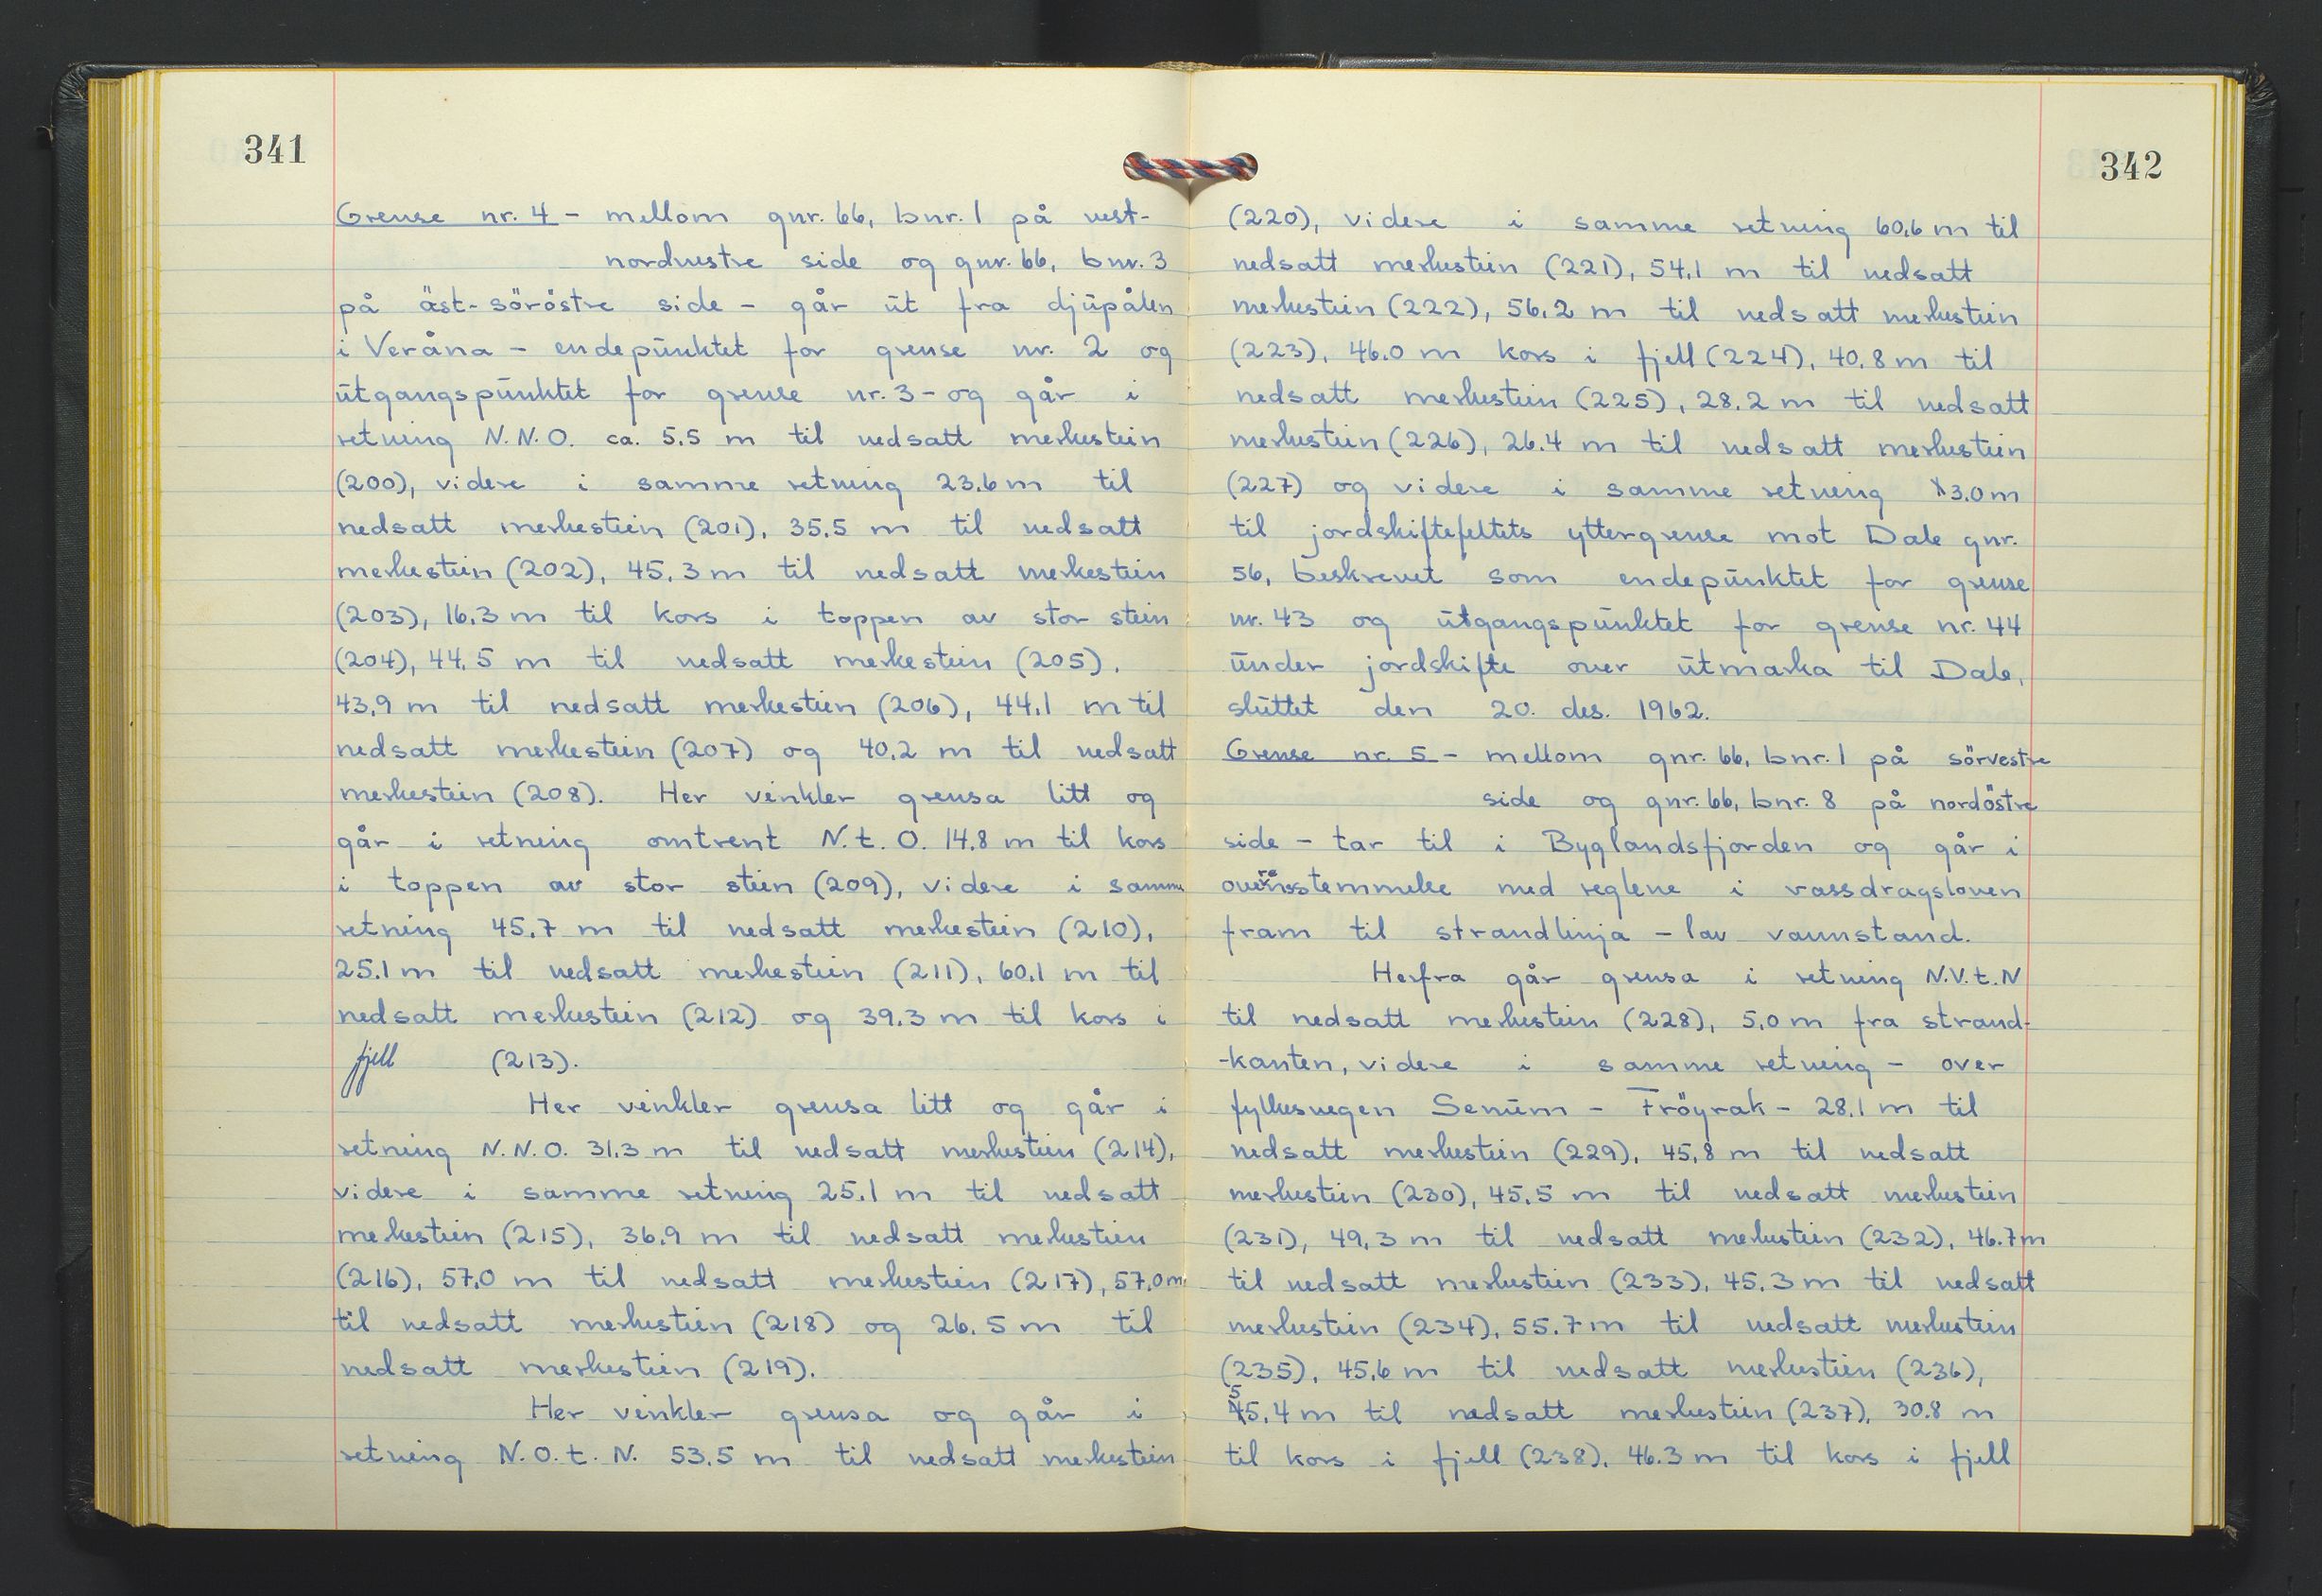 341
Grense nr. 4 - mellom gnr. 66, bnr. 1 på vest-
nordvestre side og gnr. 66, bnr. 3
på äst-söröstre side - går ut fra djupålen
i Veråna - endepunktet for grense nr. 2 og
utgangspunktet for grense nr. 3 - og går i
retning N.N.O. ca. 5,5 m til nedsatt merkestein
(200), videre i samme retning 23,6 m til
nedsatt merkestein (201), 35,5 m til nedsatt
merkestein (202), 45,3 m til nedsatt merkestein
(203), 16,3 m til kors i toppen av stor stein
(204), 44,5 m til nedsatt merkestein (205),
43,9 m til nedsatt merkestein (206), 44,1 m til
nedsatt merkestein (207) og 40,2 m til nedsatt
merkestein (208). Her vinkler grensa litt og
går i retning omtrent N.t.O. 14,8 m til kors
i toppen av stor stein (209), videre i samme
retning 45,7 m til nedsatt merkestein (210),
25,1 m til nedsatt merkestein (211), 60,1 m til
nedsatt merkestein (212) og 39,3 m til kors i
fjell (213).
Her vinkler grensa litt og går i
retning N.N.O. 31,3 m til nedsatt merkestein (214),
videre i samme retning 25,1 m til nedsatt
merkestein (215), 36,9 m til nedsatt merkestein
(216), 57,0 m til nedsatt merkestein (217), 57,0 m
til nedsatt merkestein (218) og 26,5 m til
nedsatt merkestein (219).
Her vinkler grensa og går i
retning N.O.t.N. 53,5 m til nedsatt merkestein
342
(220), videre i samme retning 60,6 m til
nedsatt merkestein (221), 54,1 m til nedsatt
merkestein (222), 56,2 m til nedsatt merkestein
(223), 46,0 m kors i fjell (224), 40,8 m til
nedsatt merkestein (225), 28,2 m til nedsatt
merkestein (226), 26,4 m til nedsatt merkestein
(227) og videre i samme retning 3,0 m
til jordskiftefeltets yttergrense mot Dale gnr.
56, beskrevet som endepunktet for grense
nr. 43 og utgangspunktet for grense nr. 44
under jordskifte over utmarka til Dale,
sluttet den 20. des. 1962.
Grense nr. 5 - mellom gnr. 66, bnr. 1 på sörvestre
side og gnr. 66, bnr. 8 på nordöstre
side - tar til i Byglandsfjorden og går i
overensstemmelse med reglene i vassdragsloven
fram til strandlinja - lav vannstand.
Herfra går grensa i retning N.V.t.N
til nedsatt merkestein (228), 5,0 m fra strand-
-kanten, videre i samme retning - over
fylkesvegen Senum - Fröyrak - 28,1 m til
nedsatt merkestein (229), 45,8 m til nedsatt
merkestein (230), 45,5 m til nedsatt merkestein
(231), 49,3 m til nedsatt merkestein (232), 46,7 m
til nedsatt merkestein (233), 45,3 m til nedsatt
merkestein (234), 55,7 m til nedsatt merkestein
(235), 45,6 m til nedsatt merkestein (236),
55,4 m til nedsatt merkestein (237), 30,8 m
til kors i fjell (238), 46,3 m til kors i fjell